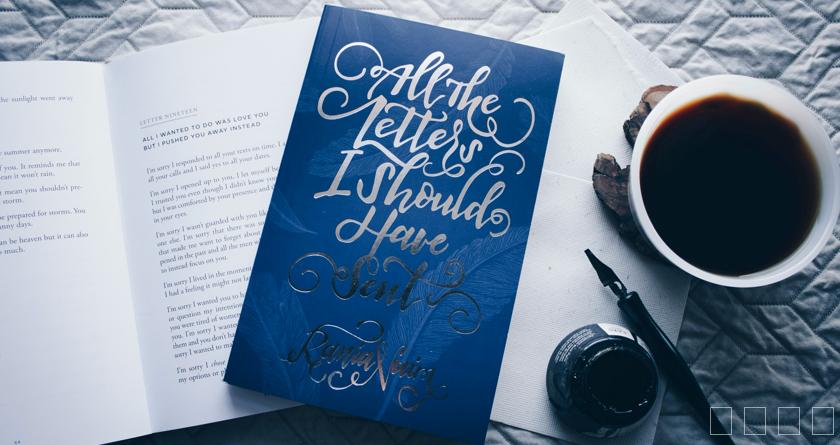 he sunlight went away
summer anymore.
f you. It reminds me that
ean it won't rain.
mean you shouldn't pre-
storm.
e prepared for storms. You
nny days.
an be heaven but it can also
s much.
64
LETTER NINETEEN
ALL I WANTED TO DO WAS LOVE YOU
BUT I PUSHED YOU AWAY INSTEAD
I'm sorry I responded to all your texts on time. I
all your calls and I said yes to all your dates.
I'm sorry I opened up to you, I let myself
I trusted you even though I didn't know
but I was comforted by your presence and
in your eyes.
I'm sorry I wasn't guarded with you lik
one else. I'm sorry that there was so
that made me want to forget about
pened in the past and all the men w
to instead focus on you.
I'm sorry I lived in the moment
I had a feeling it might not la
I'm sorry I wanted you to h
or question my intention
you were tired of wome
them and you don't ha
sorry I wanted to ma
I'm sorry I chos
my options or p
All the
Letters
I Should
Have
Sent
Rania Naim